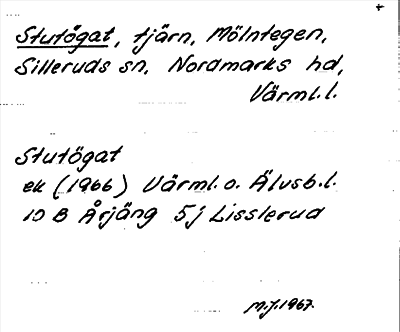 Stutögat, tjärn, Mölntegen,
Silleruds sn, Nordmarks hd,
Värml.l.
Stutögat
ek (1966) Värml. o. Älvsb.l.
10 B Årjäng 5j Lisslerud
M.J.1967.